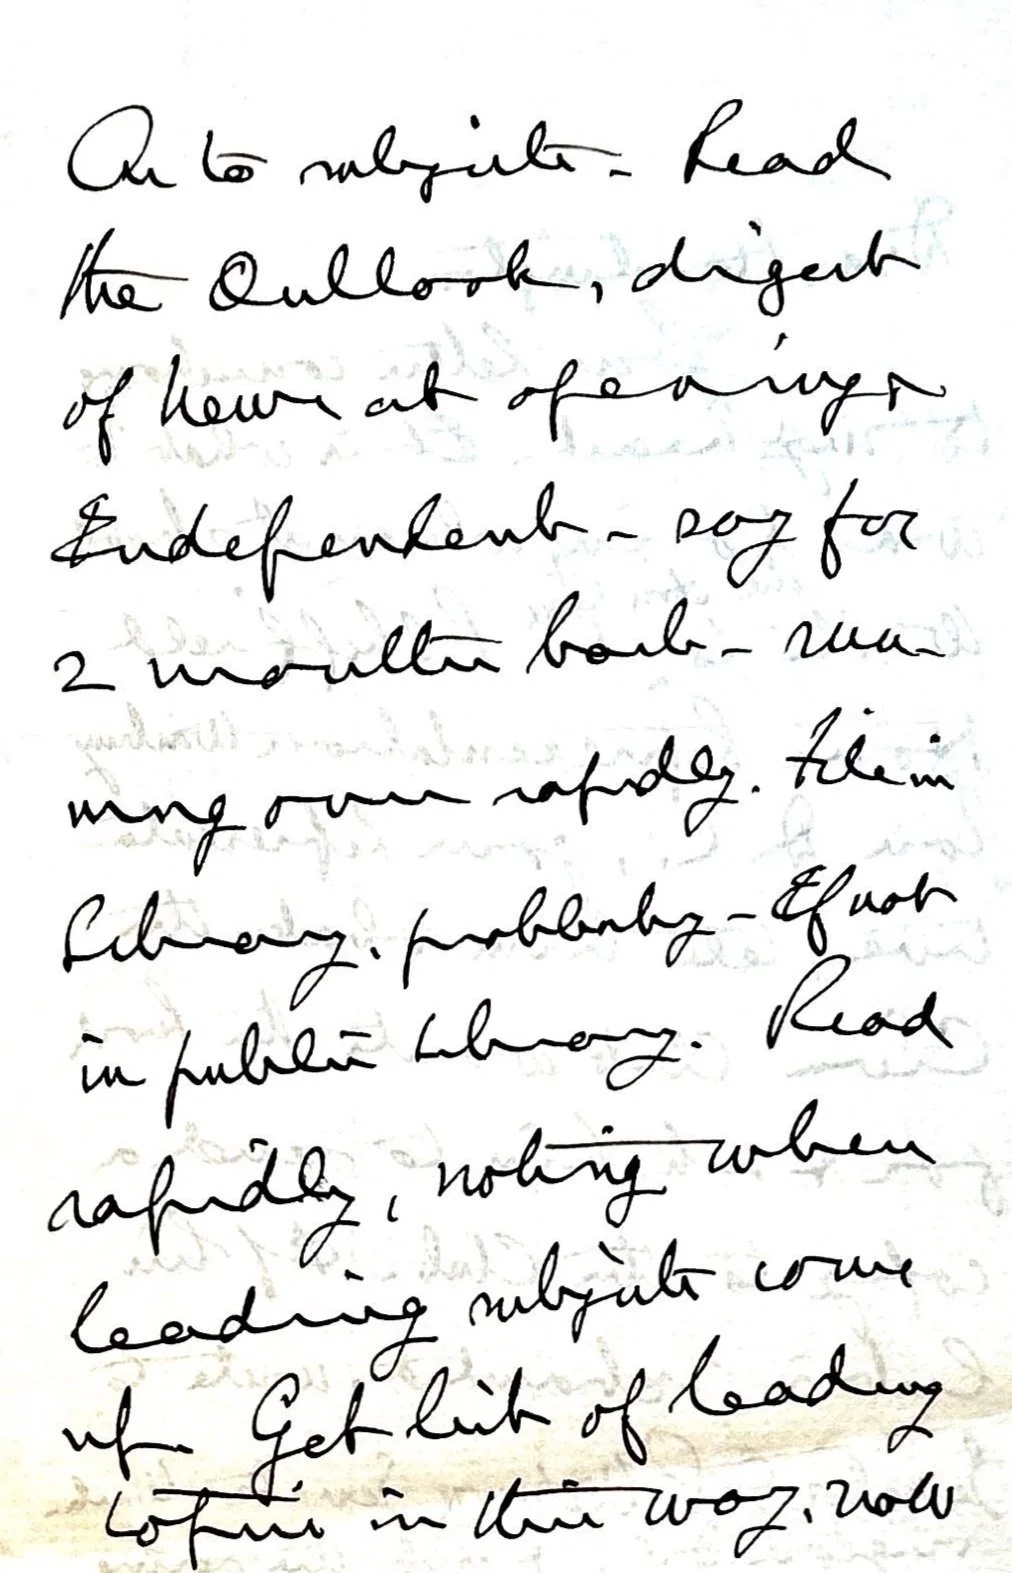 As to subjects – Read
the Outlook, digest
of News at opening,
Independent – say for
2 months back – run-
ning over rapidly. File in
Library, probably – If not
in public Library. Read
rapidly, noting when
leading subjects come
up. Get list of leading
topics in this way, now